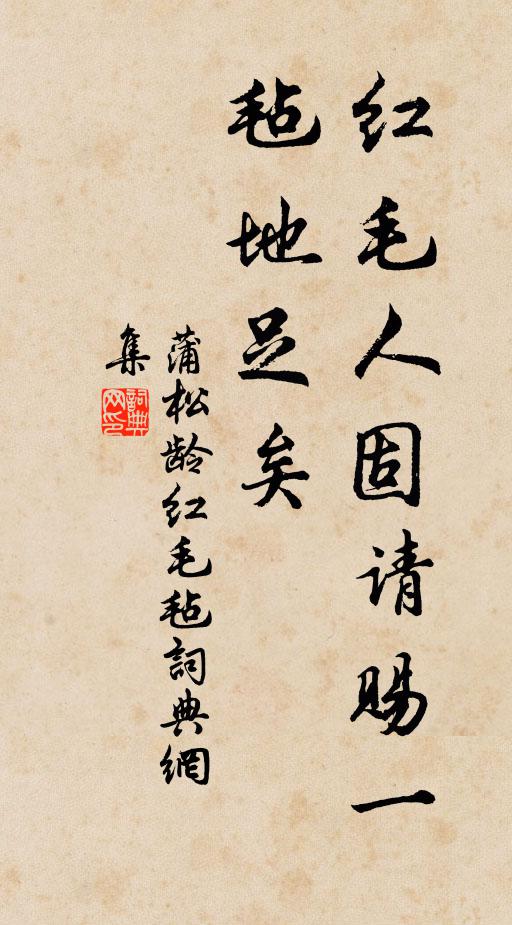 红毛人固请赐一
毡地足矣
蒲松龄红毛毡詞典網
集
詞典
网印